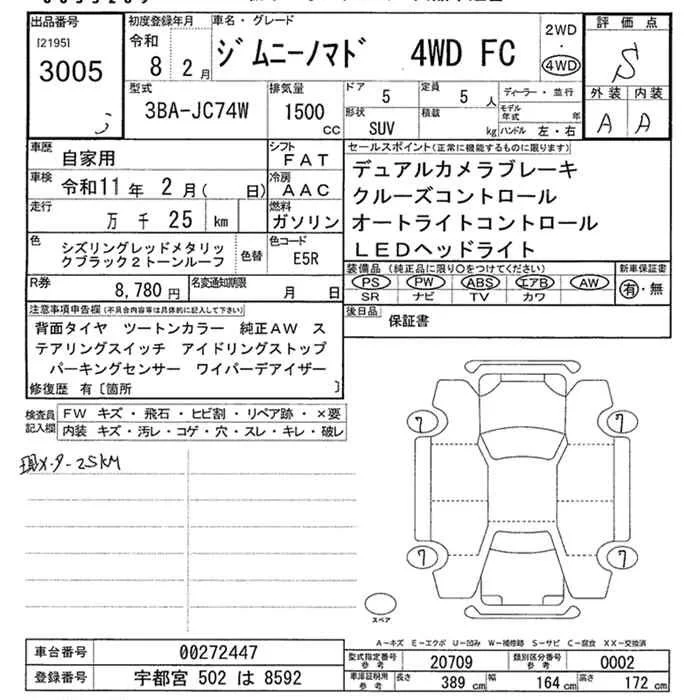 出品番号
[2195]
3005
初度登録年月
令和
8 2月
車名・グレード
ジムニーノマド 4WD FC
2WD
・
4WD
評価点
S
外装 内装
A A
型式
3BA-JC74W
排気量
1500
CC
ドア
5
定員
5 人
形状
SUV
積載
kg
ディーラー・並行
モデル年式 年
ハンドル 左・右
車歴
自家用
シフト
FAT
車検
令和11年 2月( 日)
冷房
AAC
走行
万 千 25 km
燃料
ガソリン
色
シズリングレッドメタリッ
クブラック2トーンルーフ
色替
色コード
E5R
R券
8,780円
名変通知期限
月 日
セールスポイント(正常に機能するものに限ります)
デュアルカメラブレーキ
クルーズコントロール
オートライトコントロール
LEDヘッドライト
装備品 (純正品に限り○をつけてください)
PS PW ABS エアB AW
SR ナビ TV カワ
新車保証書
有・無
後日品
保証書
注意事項申告欄(不具合内容等は具体的に記入して下さい)
背面タイヤ ツートンカラー 純正AW ス
テアリングスイッチ アイドリングストップ
パーキングセンサー ワイパーデアイザー
修復歴 有〔箇所 〕
検査員
記入欄
FW キズ・飛石・ヒビ割・リペア跡・×要
内装 キズ・汚レ・コゲ・穴・スレ・キレ・破レ
メータ-25KM
7
7
7
7
スペア
A-キズ E-エクボ U-凹み W-補修跡 S-サビ C-腐食 XX-交換済
車台番号
00272447
登録番号
宇都宮 502 は 8592
型式指定番号
参考
20709
類別区分番号
参考
0002
車庫証明用
参考
長さ
389 cm
幅
164 cm
高さ
172 cm